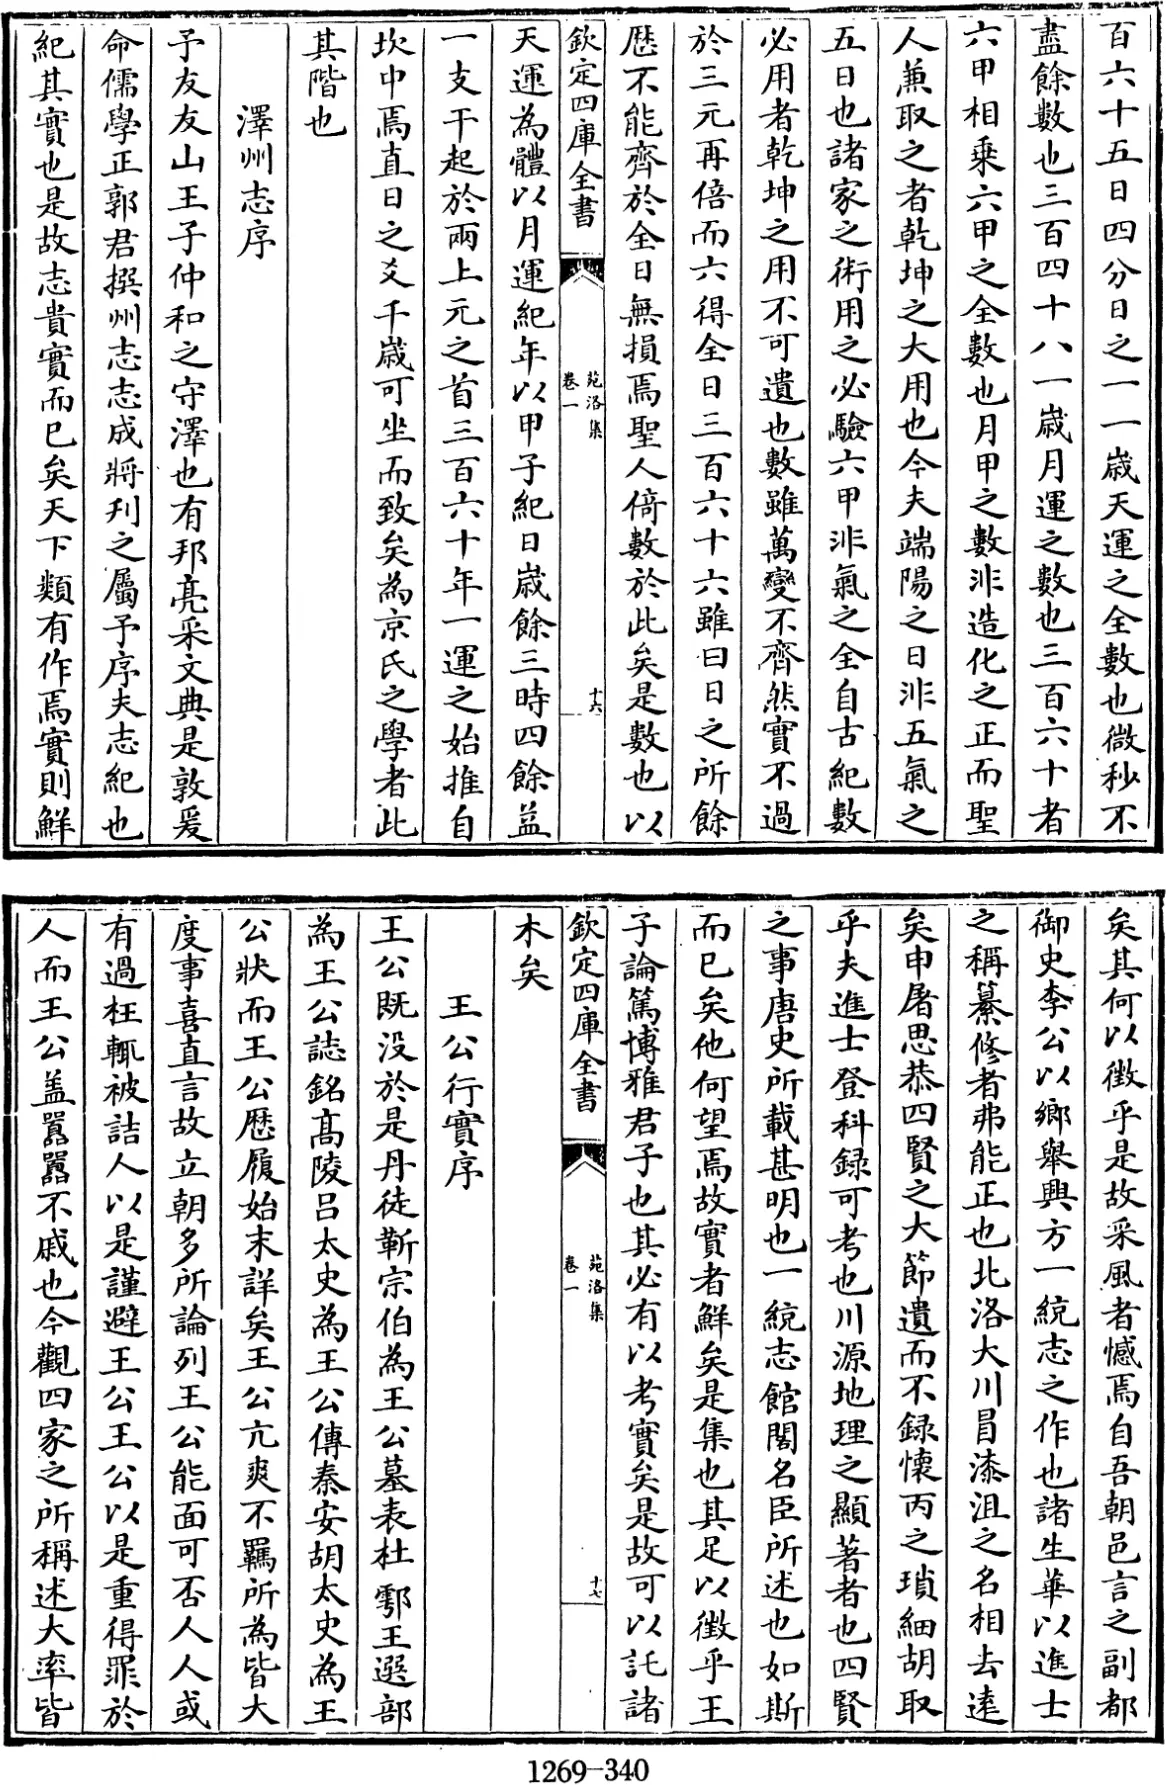 百六十五日四分日之一一歲天運之全數也微秒不
盡餘數也三百四十八一歲月運之數也三百六十者
六甲相乗六甲之全數也月甲之數非造化之正而聖
人兼取之者乾坤之大用也今夫端陽之日非五氣之
五日也諸家之術用之必驗六甲非氣之全自古紀數
必用者乾坤之用不可遺也數雖萬變不齊然實不過
於三元再倍而六得全日三百六十六雖曰日之所餘
歴不能齊於全日無損焉聖人倚數於此矣是數也以
欽定四庫全書
苑洛集
卷一
十六
天運為體以月運紀年以甲子紀日歲餘三時四餘益
一支干起於兩上元之首三百六十年一運之始推自
坎中焉直日之爻千歲可坐而致矣為京氏之學者此
其階也
澤州志序
予友友山王子仲和之守澤也有邦亮采文典是敦爰
命儒學正郭君撰州志志成將刋之屬予序夫志紀也
紀其實也是故志貴實而已矣天下類有作焉實則鮮
矣其何以徵乎是故采風者憾焉自吾朝邑言之副都
御史李公以鄉舉興方一統志之作也諸生華以進士
之稱纂修者弗能正也北洛大川冒漆沮之名相去逺
矣申屠思恭四賢之大節遺而不録懐丙之瑣細胡取
乎夫進士登科録可考也川源地理之顯著者也四賢
之事唐史所載甚明也一統志館閣名臣所述也如斯
而已矣他何望焉故實者鮮矣是集也其足以徵乎王
子論篤博雅君子也其必有以考實矣是故可以託諸
欽定四庫全書
苑洛集
卷一
十七
木矣
王公行實序
王公既没於是丹徒靳宗伯為王公墓表杜鄠王選部
為王公誌銘髙陵吕太史為王公傳秦安胡太史為王
公狀而王公歴履始末詳矣王公亢爽不羈所為皆大
度事喜直言故立朝多所論列王公能面可否人人或
有過枉輒被詰人以是謹避王公王公以是重得罪於
人而王公盖囂囂不戚也今觀四家之所稱述大率皆
1269-340